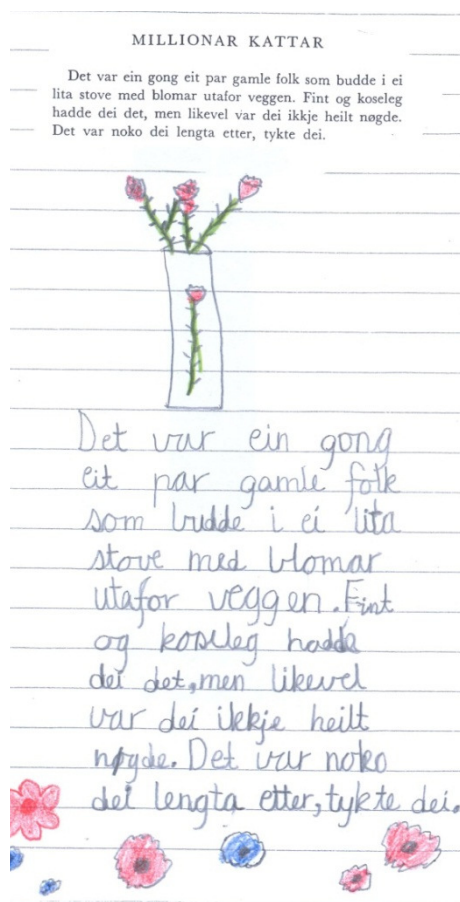 MILLIONAR KATTAR
Det var ein gong eit par gamle folk som budde i ei
lita stove med blomar utafor veggen. Fint og koseleg
hadde dei det, men likevel var dei ikkje heilt nøgde.
Det var noko dei lengta etter, tykte dei.
Det var ein gong
eit par gamle folk
som budde i ei lita
stove med blomar
utafor veggen. Fint
og koseleg hadde
dei det, men likevel
var dei ikkje heilt
nøgde. Det var noko
dei lengta etter, tykte dei.